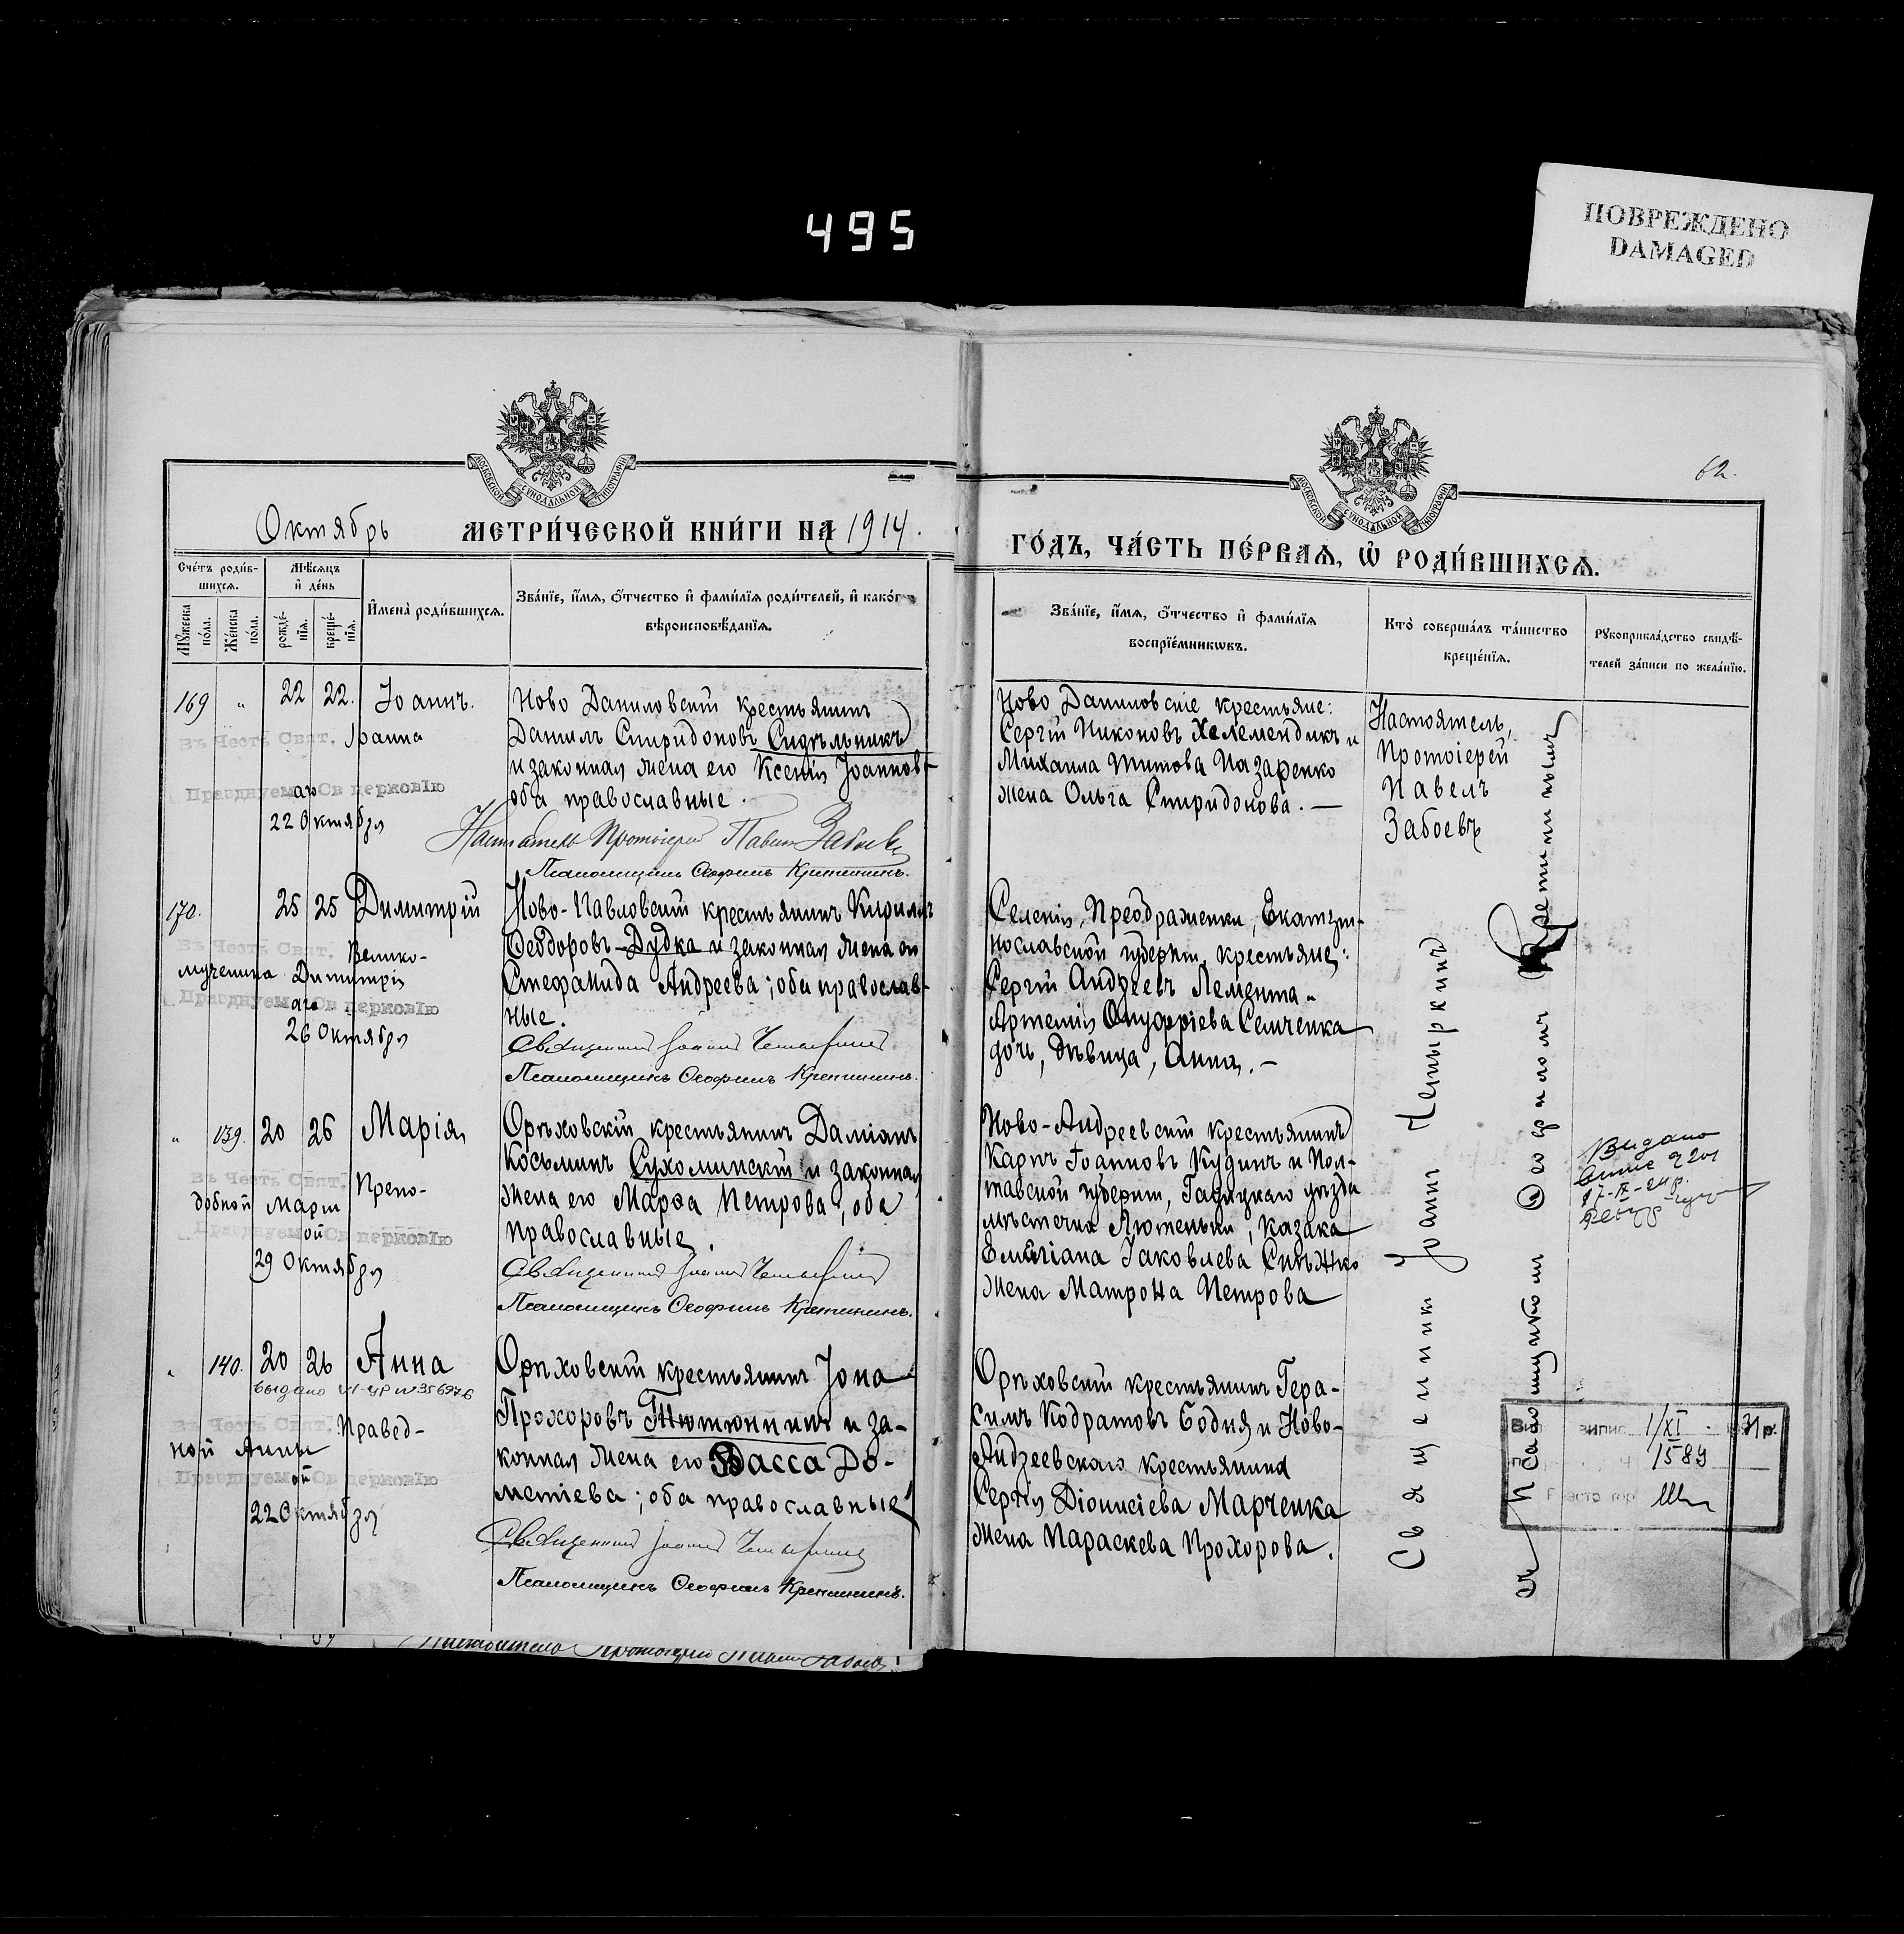 495
ПОВРЕЖДЕНО
DAMAGED
МОСКОВСКОЙ СѴНОДАЛЬНОЙ ТИПОГРАФІИ
МОСКОВСКОЙ СѴНОДАЛЬНОЙ ТИПОГРАФІИ
62.
Октябрь МЕТРИ́ЧЕСКОЙ КНИ́ГИ НА 1914.
ГО́ДЪ, ЧА́СТЬ ПЕ́РВАѦ, Ѡ҆ РОДИ́ВШИХСѦ.
Сче́тъ роди́в-
шихсѧ.
Мѣ́сѧцъ
и҆ де́нь
Мꙋ́жеска
по́ла.
Же́нска
по́ла.
рожде́-
нїѧ.
креще́-
нїѧ.
И҆мена̀ роди́вшихсѧ.
Зва́нїе, и҆́мѧ, ѻ҆́тчество и҆ фами́лїѧ роди́телей, и҆ како́гѡ
вѣроисповѣ́данїѧ.
Зва́нїе, и҆́мѧ, ѻ҆́тчество и҆ фами́лїѧ
воспрїе́мникѡвъ.
Кто̀ соверша́лъ та́инство
креще́нїѧ.
Рꙋкоприкла́дство свидѣ́-
телей за́писи по жела́нїю.
169 „ 22 22. Іоаннъ.
Въ Честь Свят. Іоанна
Празднуемаго Св церковІю
22 Октября
Ново Даниловскій крестьянинъ
Даніилъ Спиридоновъ Сидѣльникъ
и законная жена его Ксенія Іоаннов
оба православные.
Настоятель Протоіерей Павелъ Забоевъ
Псаломщикъ Ѳеофилъ Кретининъ.
Ново Даниловскіе крестьяне:
Сергій Никоновъ Хелемендикъ и
Михаила Титова Назаренко
жена Ольга Спиридонова. —
Настоятель,
Протоіерей
Павелъ
Забоевъ
170. 25 25 Димитрій
Въ Честь Свят. Велико-
мученика Димитрія
Празднуемаго Св церковІю
26 Октября
Ново-Павловскій крестьянинъ Кириллъ
Ѳеодоровъ Дудка и законная жена его
Стефанида Андреева; оба православ-
ные.
Священникъ Іоаннъ Четыркинъ
Псаломщикъ Ѳеофилъ Кретининъ.
Селенія, Преображенки, Екатери-
нославской губерніи, крестьяне:
Сергій Андреевъ Лемента и
Артемія Онуфріева Семченка
дочь, дѣвица, Анна. —
„ 139. 20 26 Марія
Въ Честь Свят. Препо-
добной Маріи
Празднуемой Св церковІю
29 Октября
Орѣховскій крестьянинъ Даміанъ
Косьминъ Сухоминскій и законная
жена его Марѳа Петрова; оба
православные.
Священникъ Іоаннъ Четыркинъ
Псаломщикъ Ѳеофилъ Кретининъ.
Ново-Андреевскій крестьянинъ
Карпъ Іоанновъ Кудинъ и Пол-
тавской губерніи, Гадяцкаго уѣзда
мѣстечка Лютеньки, казака
Емиліана Іаковлева Снѣжко
жена Матрона Петрова
Видано
„ 140. 20 26 Анна
Выдано
Въ Честь Свят. Правед-
ной Анны
Празднуемой Св церковІю
22 Октября
Орѣховскій крестьянинъ Іона
Прохоровъ Тютюнникъ и за-
конная жена его Васса До-
метіева; оба православные
Священникъ Іоаннъ Четыркинъ
Псаломщикъ Ѳеофилъ Кретининъ.
Орѣховскій крестьянинъ Гера-
симъ Кодратовъ Бодня и Ново-
Андреевскаго крестьянина
Сергія Діонисіева Марченка
жена Параскева Прохорова.
Священникъ Іоаннъ Четыркинъ
съ псаломщикомъ Ѳеофиломъ Кретининымъ
випис 1/XI 31 р.
1589
Настоятель Протоіерей Павелъ Забоевъ